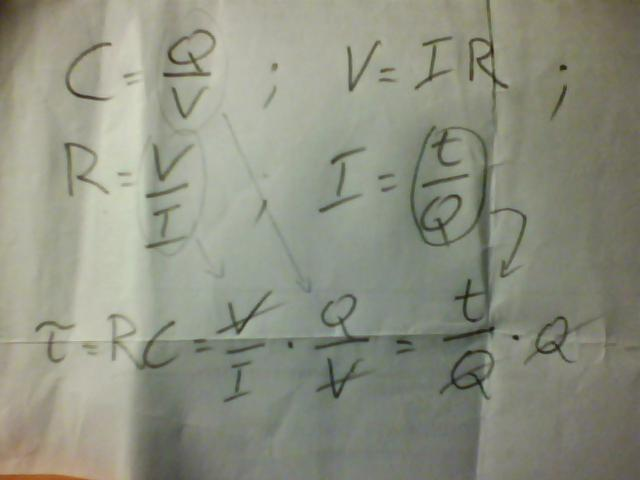 C = Q/V ; V = IR ;
R = V/I ; I = t/Q
τ = RC = V/I · Q/V = t/Q · Q